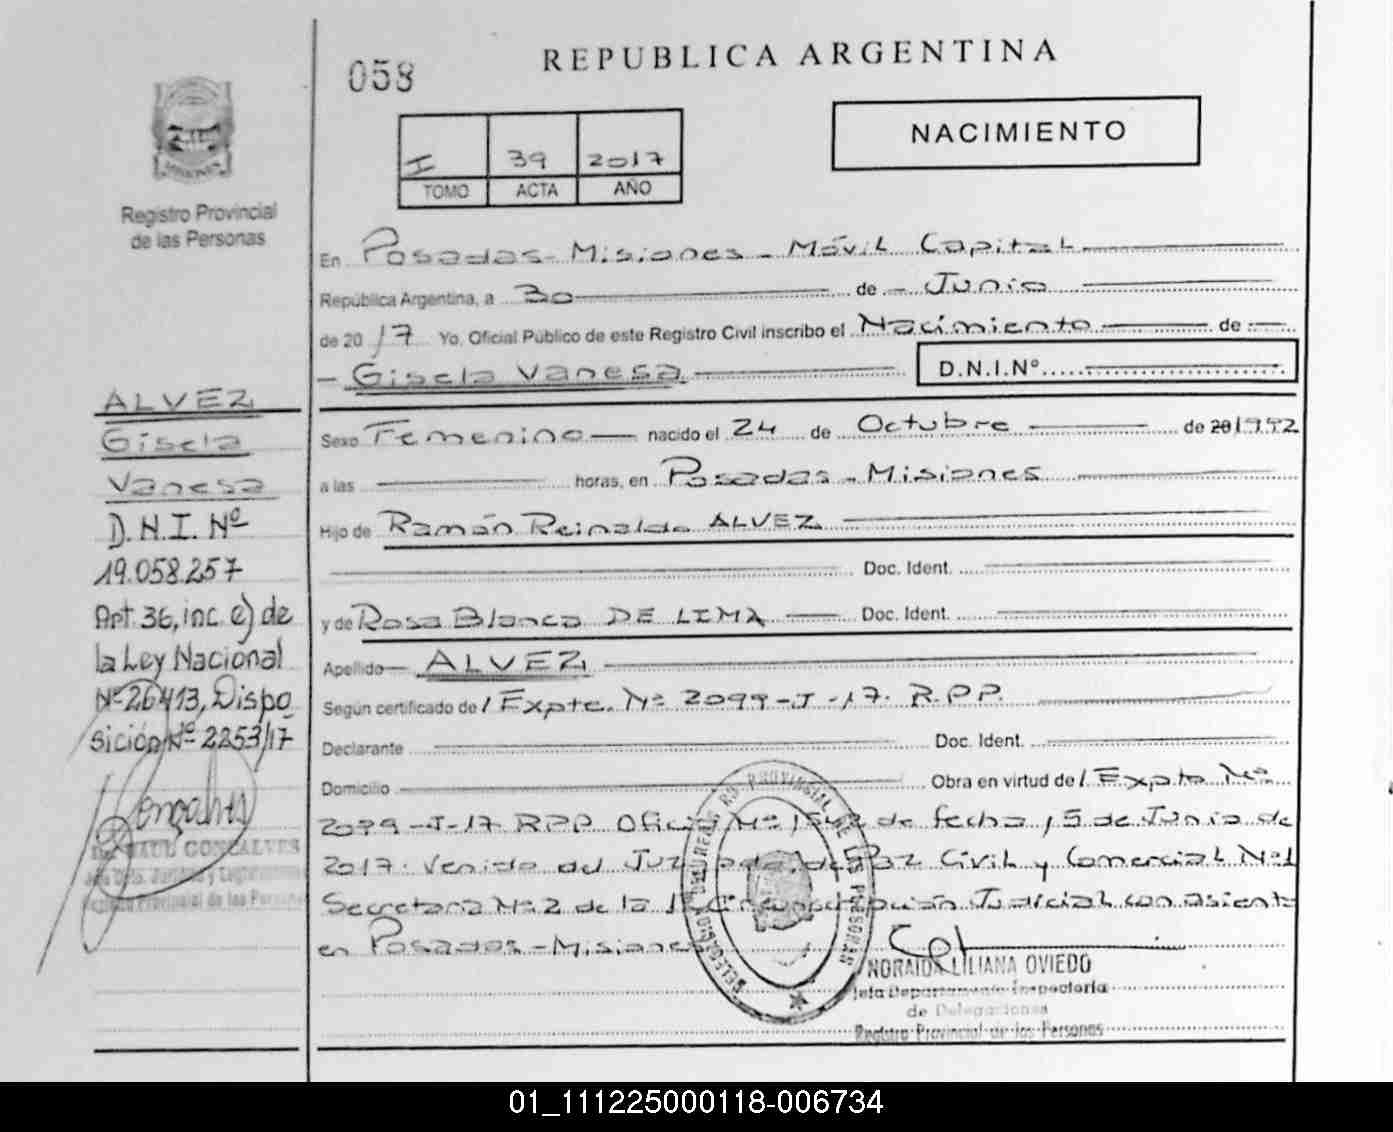 REPUBLICA ARGENTINA
058
I 39 2017
TOMO ACTA AÑO
NACIMIENTO
MISIONES
Registro Provincial
de las Personas
En Posadas - Misiones - Móvil Capital
República Argentina, a 30 de - Junio
de 2017 Yo, Oficial Público de este Registro Civil inscribo el Nacimiento de
Gisela Vanesa D.N.I.Nº
Sexo Femenino nacido el 24 de Octubre de 20 1992
a las horas, en Posadas - Misiones
Hijo de Ramón Reinaldo ALVEZ
Doc. Ident.
y de Rosa Blanca DE LIMA Doc. Ident.
Apellido ALVEZ
Según certificado de / Expte. Nº 2099-J-17. R.P.P.
Declarante Doc. Ident.
Domicilio Obra en virtud de / Expte Nº
2099-J-17 RPP Oficio Nº 1542 de fecha 15 de Junio de
2017. Venido del Juzgado de Paz Civil y Comercial Nº1
Secretaria Nº2 de la 1º Circunscripción Judicial con asiento
en Posadas - Misiones
ALVEZ
Gisela
Vanesa
D.N.I. Nº
19.058.257
Art. 36, inc. e) de
la Ley Nacional
Nº 26413, Dispo
sición Nº 2253/17
RAUL GONCALVES
Registro Provincial de las Personas
PROVINCIAL DE LAS PERSONAS
NORAIDA LILIANA OVIEDO
Jefa Departamento Inspectoria
de Delegaciones
Registro Provincial de las Personas
01_111225000118-006734